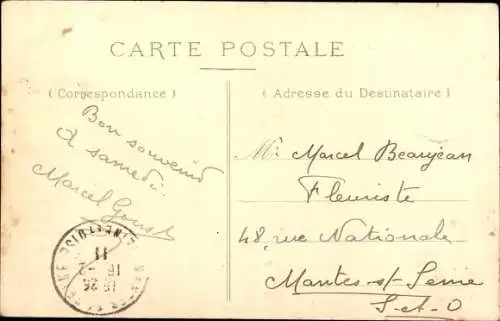 CARTE POSTALE
( Correspondance )
( Adresse du Destinataire )
Bon souvenir
à samedi.
Marcel
Mr Marcel Beaujean
Fleuriste
48, rue Nationale
Mantes-s/-Seine
S-et-O
11
16